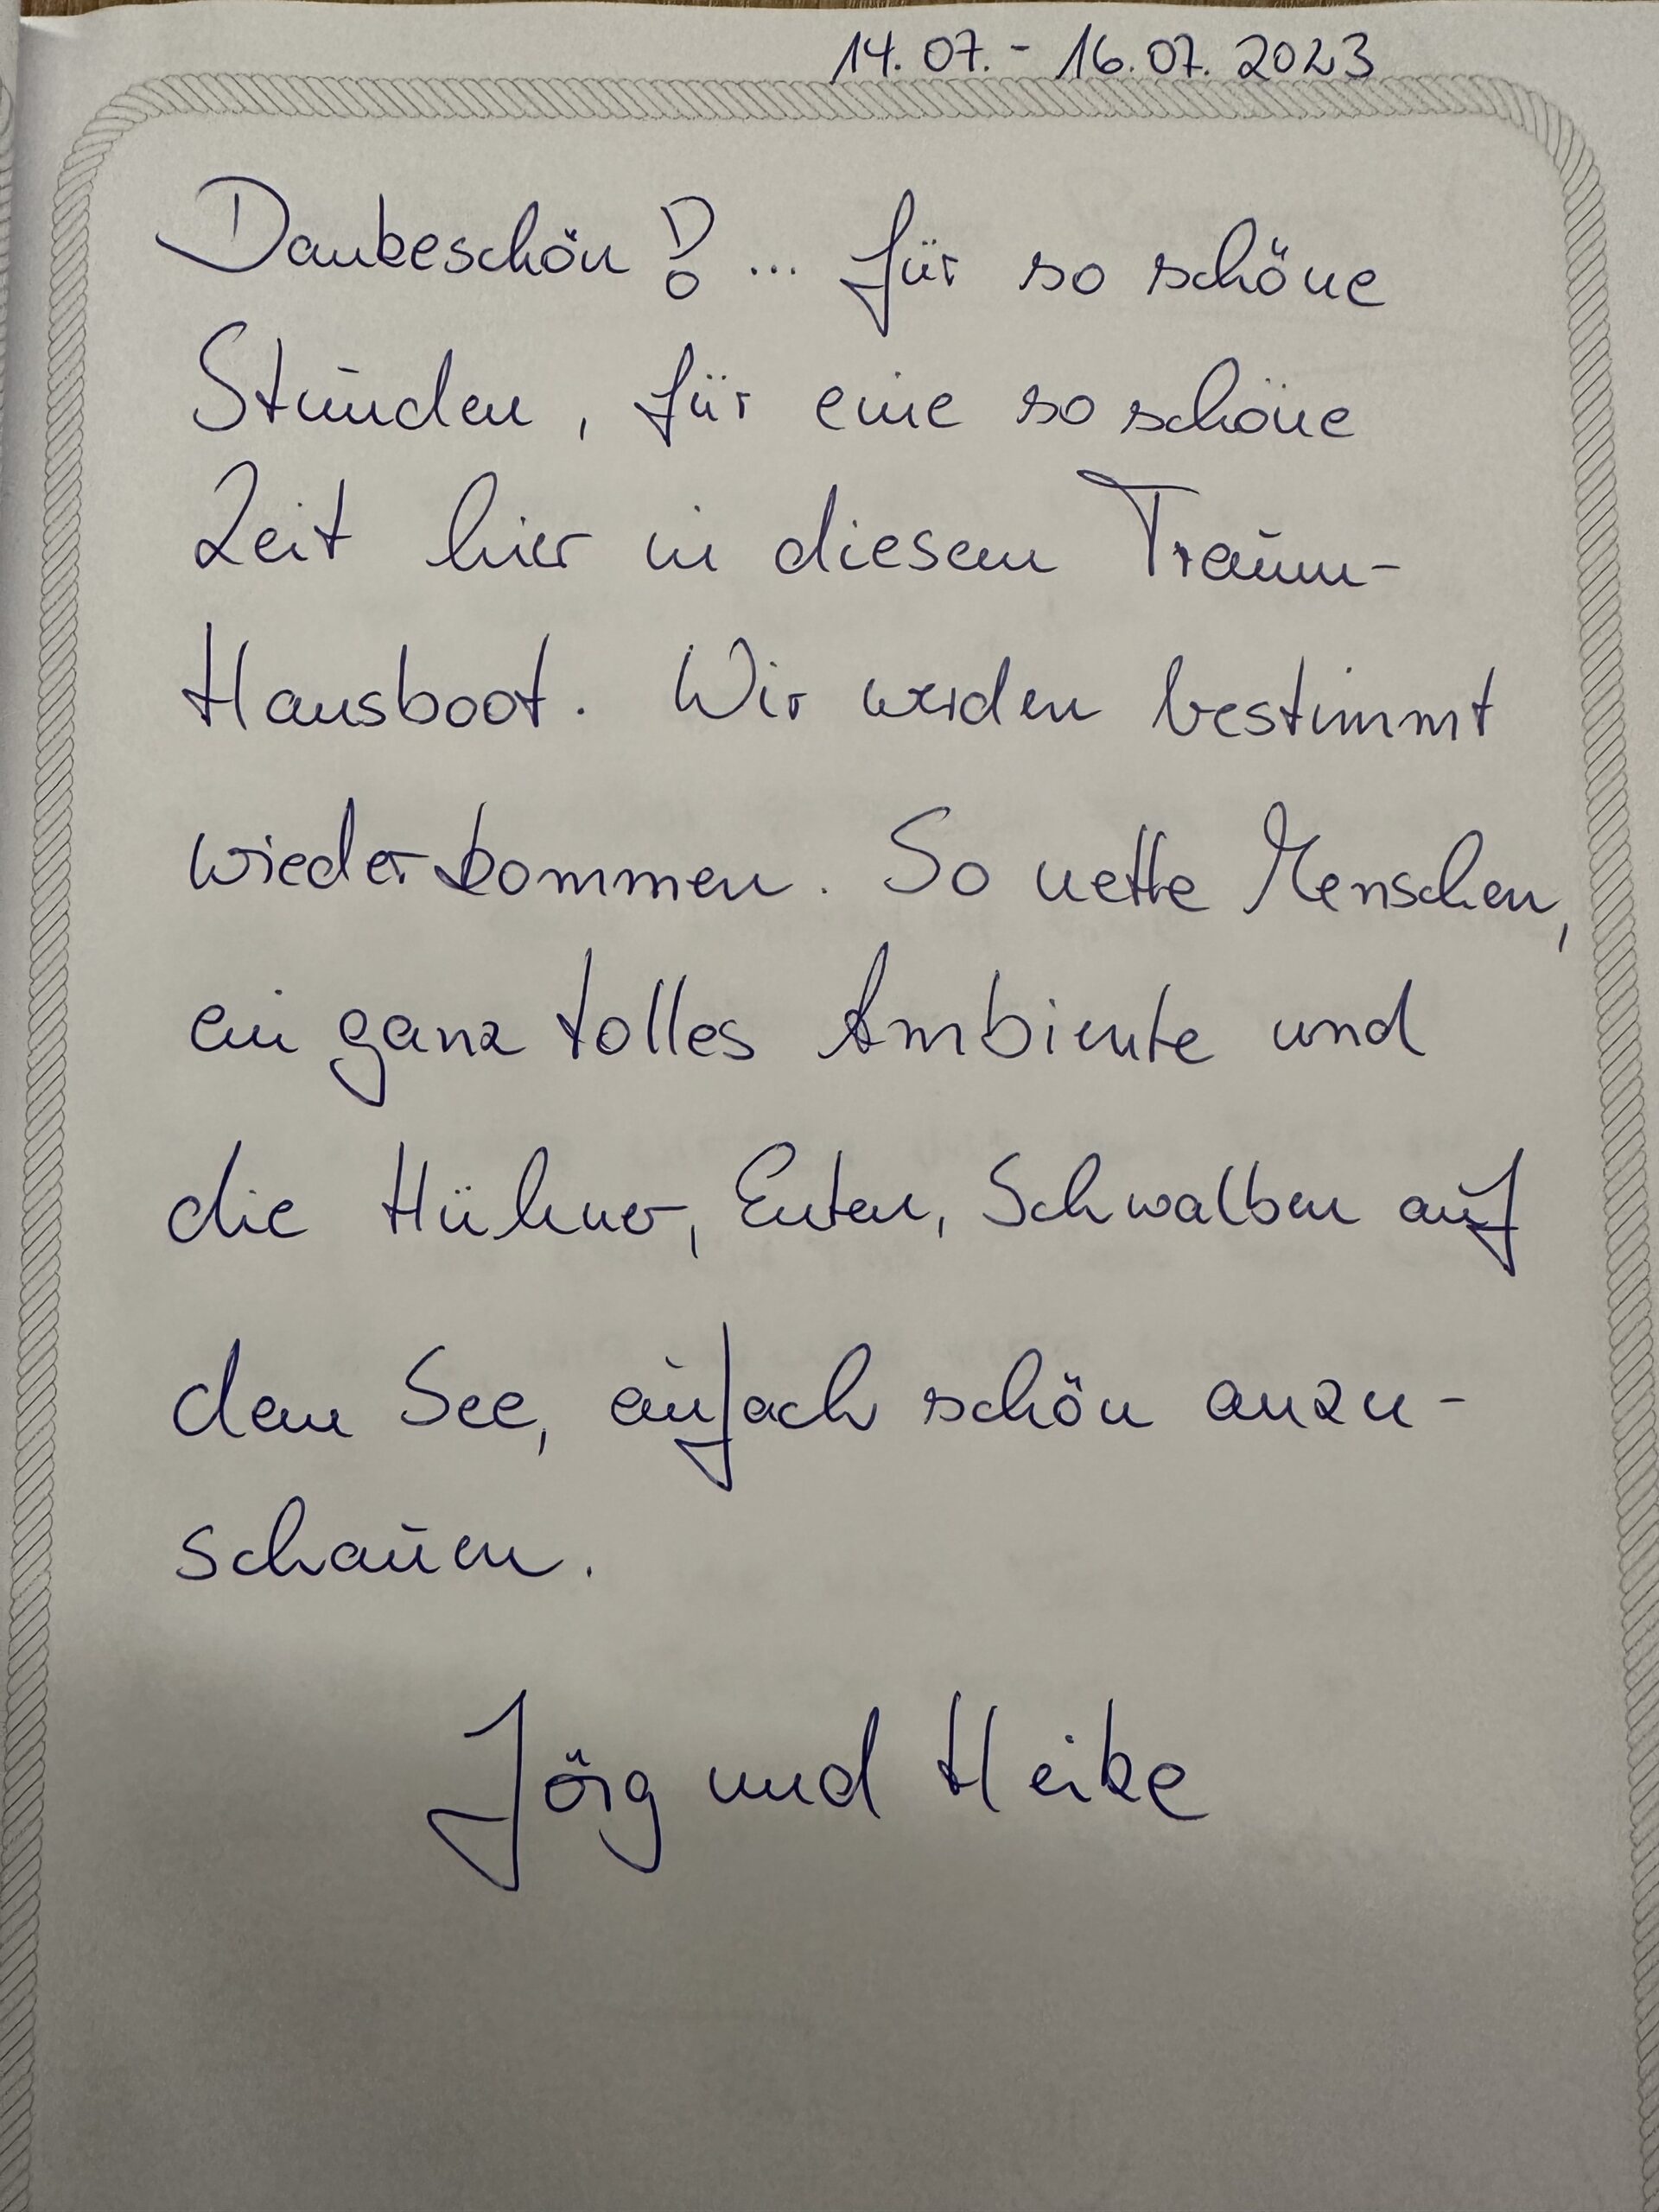 14.07. - 16.07. 2023
Dankeschön! ... für so schöne
Stunden, für eine so schöne
Zeit hier in diesem Traum-
Hausboot. Wir werden bestimmt
wiederkommen. So nette Menschen,
ein ganz tolles Ambiente und
die Hühner, Enten, Schwalben auf
dem See, einfach schön anzu-
schauen.
Jörg und Heike